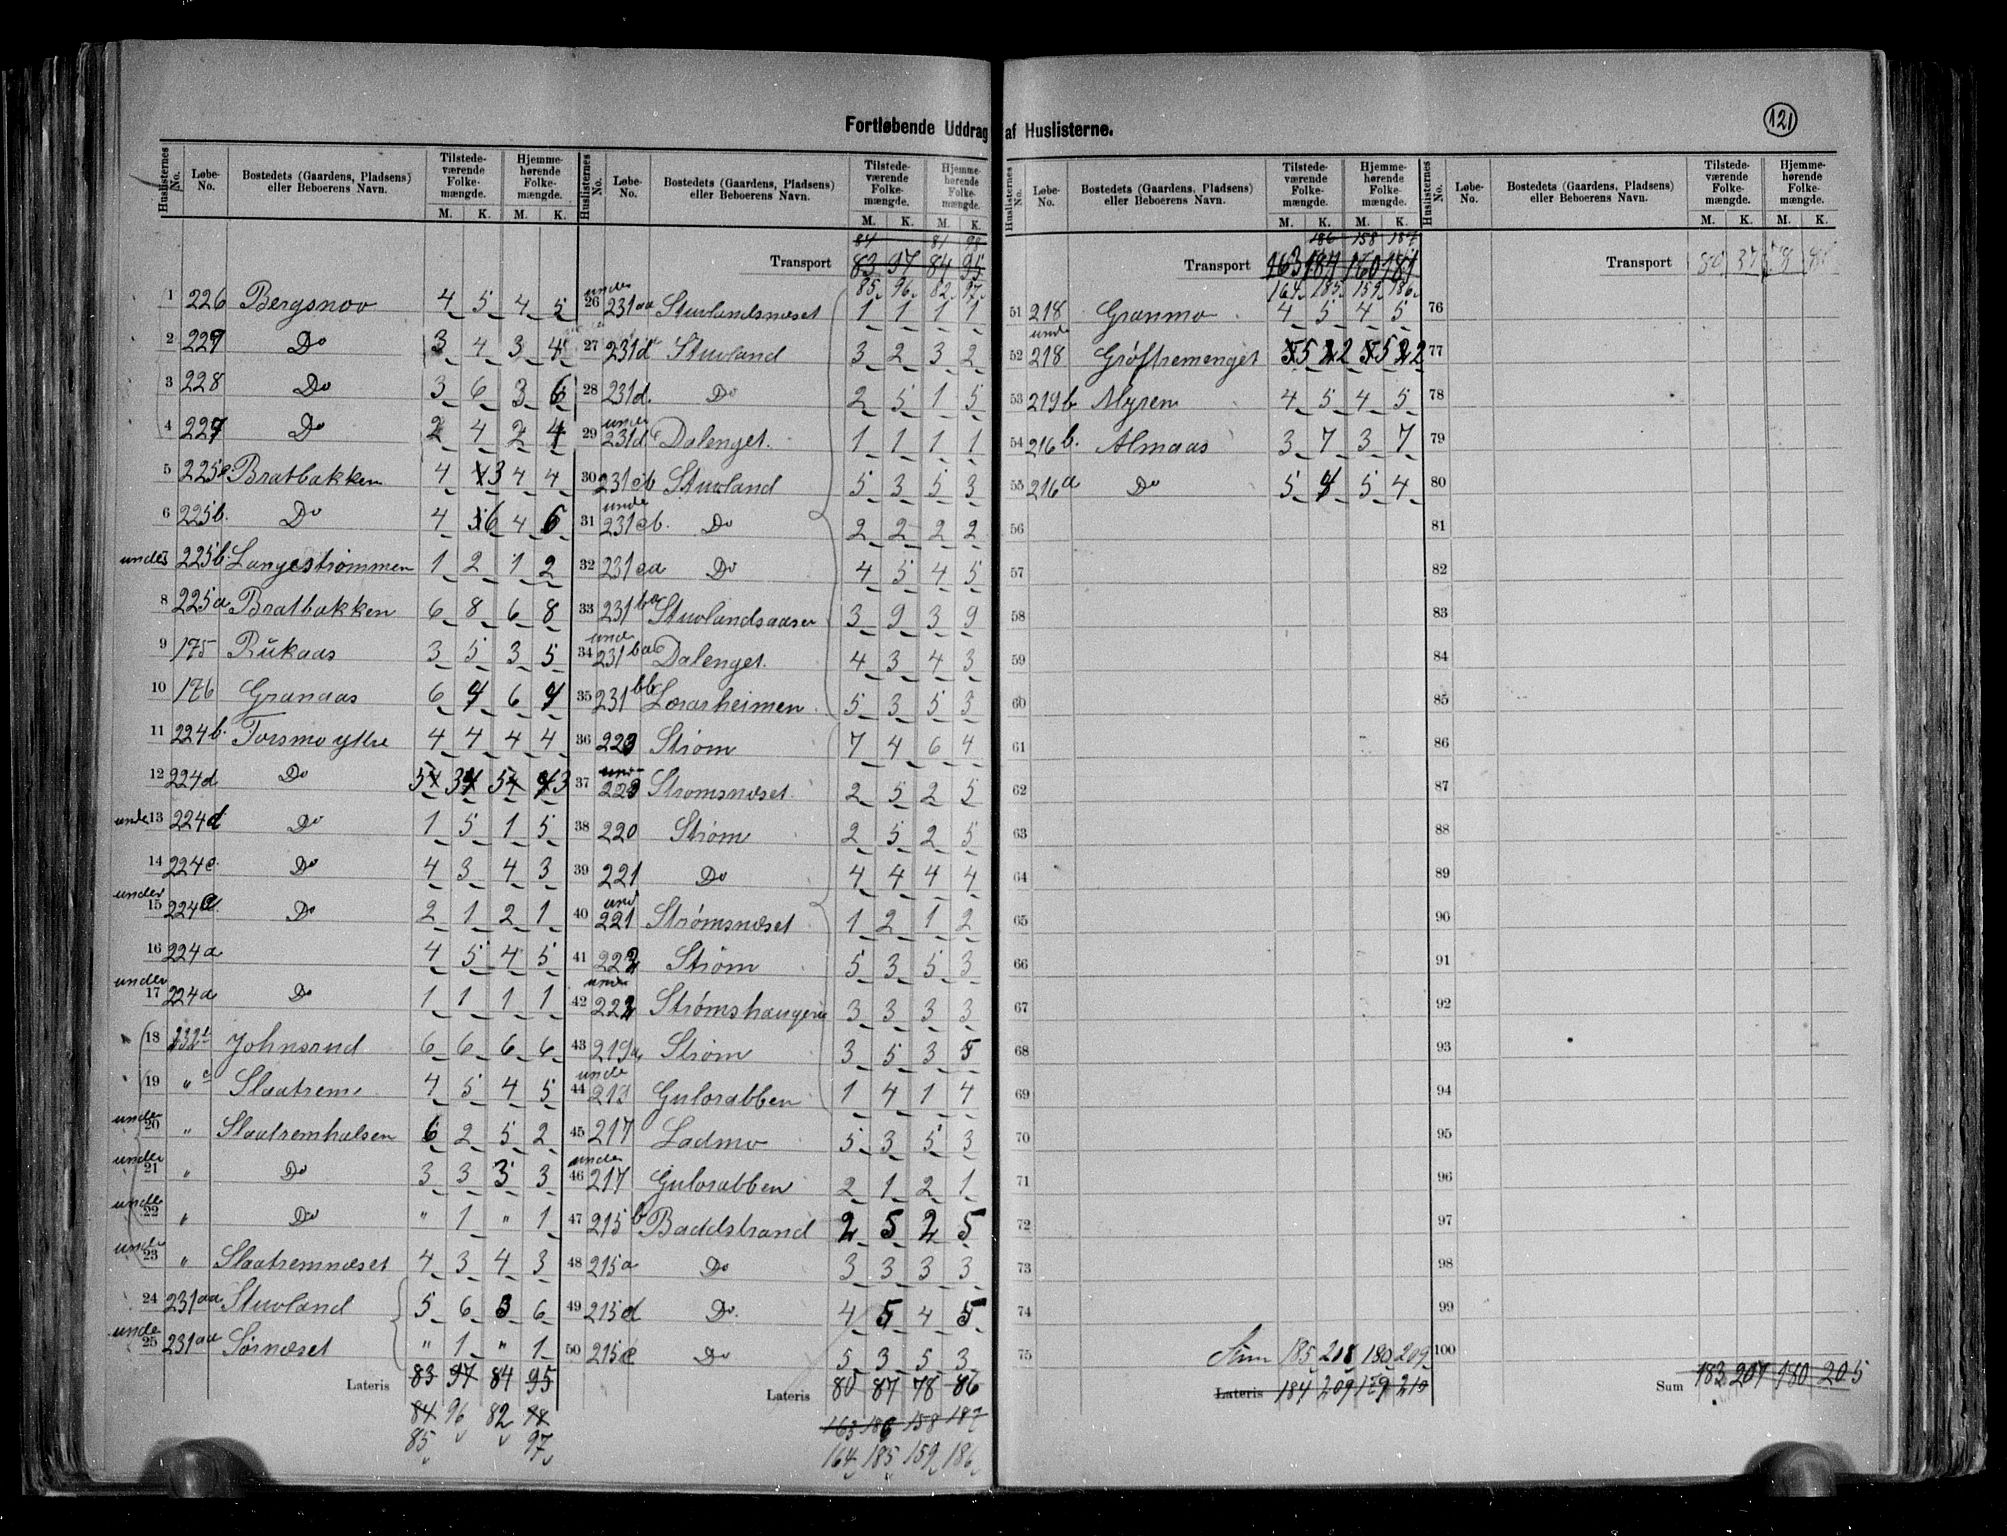 Fortløbende Uddrag af Huslisterne.
121
Huslisternes No. Løbe-No. Bostedets (Gaardens, Pladsens) eller Beboerens Navn. Tilstedeværende Folkemængde. M. K. Hjemmehørende Folkemængde. M. K.
1 226 Bergsnov 4 5 4 5
2 227 Do 3 4 3 4
3 228 Do 3 6 3 6
4 227 Do 2 4 2 4
5 225c Bratbakken 4 3 4 4
6 225b. Do 4 6 4 6
under 7 225b. Langestrømmen 1 2 1 2
8 225a Bratbakken 6 8 6 8
9 175 Rukaas 3 5 3 5
10 176 Granaas 6 4 6 4
11 224b. Forsmo yttre 4 4 4 4
12 224d Do 5 3 5 3
unde 13 224d Do 1 5 1 5
14 224c. Do 4 3 4 3
under 15 224c. Do 2 1 2 1
16 224a 4 5 4 5
under 17 224a Do 1 1 1 1
18 232 Johnsrud 6 6 6 6
19 " c Slaatrem 4 5 4 5
unde 20 " Slaatremhalsen 6 2 5 2
under 21 " Do 3 3 3 3
unde 22 " Do " 1 " 1
unde 23 " Slaatremnæset 4 3 4 3
24 231aa Stuvland 5 6 3 6
unde 25 231aa Sørnæset " 1 " 1
Lateris 83 97 84 95
84 96 82 98
85 97
Huslisternes No. Løbe-No. Bostedets (Gaardens, Pladsens) eller Beboerens Navn. Tilstedeværende Folkemængde. M. K. Hjemmehørende Folkemængde. M. K.
84 81 98
Transport 83 97 84 95
85 96 82 97
under 26 231aa Stuvlandsnæset 1 1 1 1
27 231d Stuvland 3 2 3 2
28 231d. Do 2 5 1 5
under 29 231d Dalenget. 1 1 1 1
30 231cb Stuvland 5 3 5 3
unde 31 231cb. Do 2 2 2 2
32 231ca Do 4 5 4 5
33 231ba Stuvlandsaasen 3 9 3 9
unde 34 231ba Dalenget. 4 3 4 3
35 231bb Lærarheimen 5 3 5 3
36 223 Strøm 7 4 6 4
37 223 Strømsnæset. 2 5 2 5
38 220 Strøm 2 5 2 5
39 221 Do 4 4 4 4
und 40 221 Strømsnæset 1 2 1 2
41 222 Strøm 5 3 5 3
unde 42 222 Strømshaugen 3 3 3 3
43 219a Strøm 3 5 3 5
unde 44 219 Gulsrabben 1 4 1 4
45 217 Ladmo 5 3 5 3
under 46 217 Gulsrabben 2 1 2 1
47 215b Baddstrand 2 5 2 5
48 215a Do 3 3 3 3
49 215d Do. 4 5 4 5
50 215c Do 5 3 5 3
Lateris 80 87 78 86
163 186 158 187
164 185 159 186
Huslisternes No. Løbe-No. Bostedets (Gaardens, Pladsens) eller Beboerens Navn. Tilstedeværende Folkemængde. M. K. Hjemmehørende Folkemængde. M. K.
186 158 187
Transport 163 184 160 181
164 185 159 186
51 218 Granmo 4 5 4 5
unde 52 218 Grøftremenget 5 2 5 2
53 219b Myren 4 5 4 5
54 216b. Almaas 3 7 3 7
55 216a Do 5 4 5 4
56
57
58
59
60
61
62
63
64
65
66
67
68
69
70
71
72
73
74
75
Sum 185 208 180 209
Lateris 184 209 179 210
Huslisternes No. Løbe-No. Bostedets (Gaardens, Pladsens) eller Beboerens Navn. Tilstedeværende Folkemængde. M. K. Hjemmehørende Folkemængde. M. K.
Transport
76
77
78
79
80
81
82
83
84
85
86
87
88
89
90
91
92
93
94
95
96
97
98
99
100
Sum 183 207 180 205